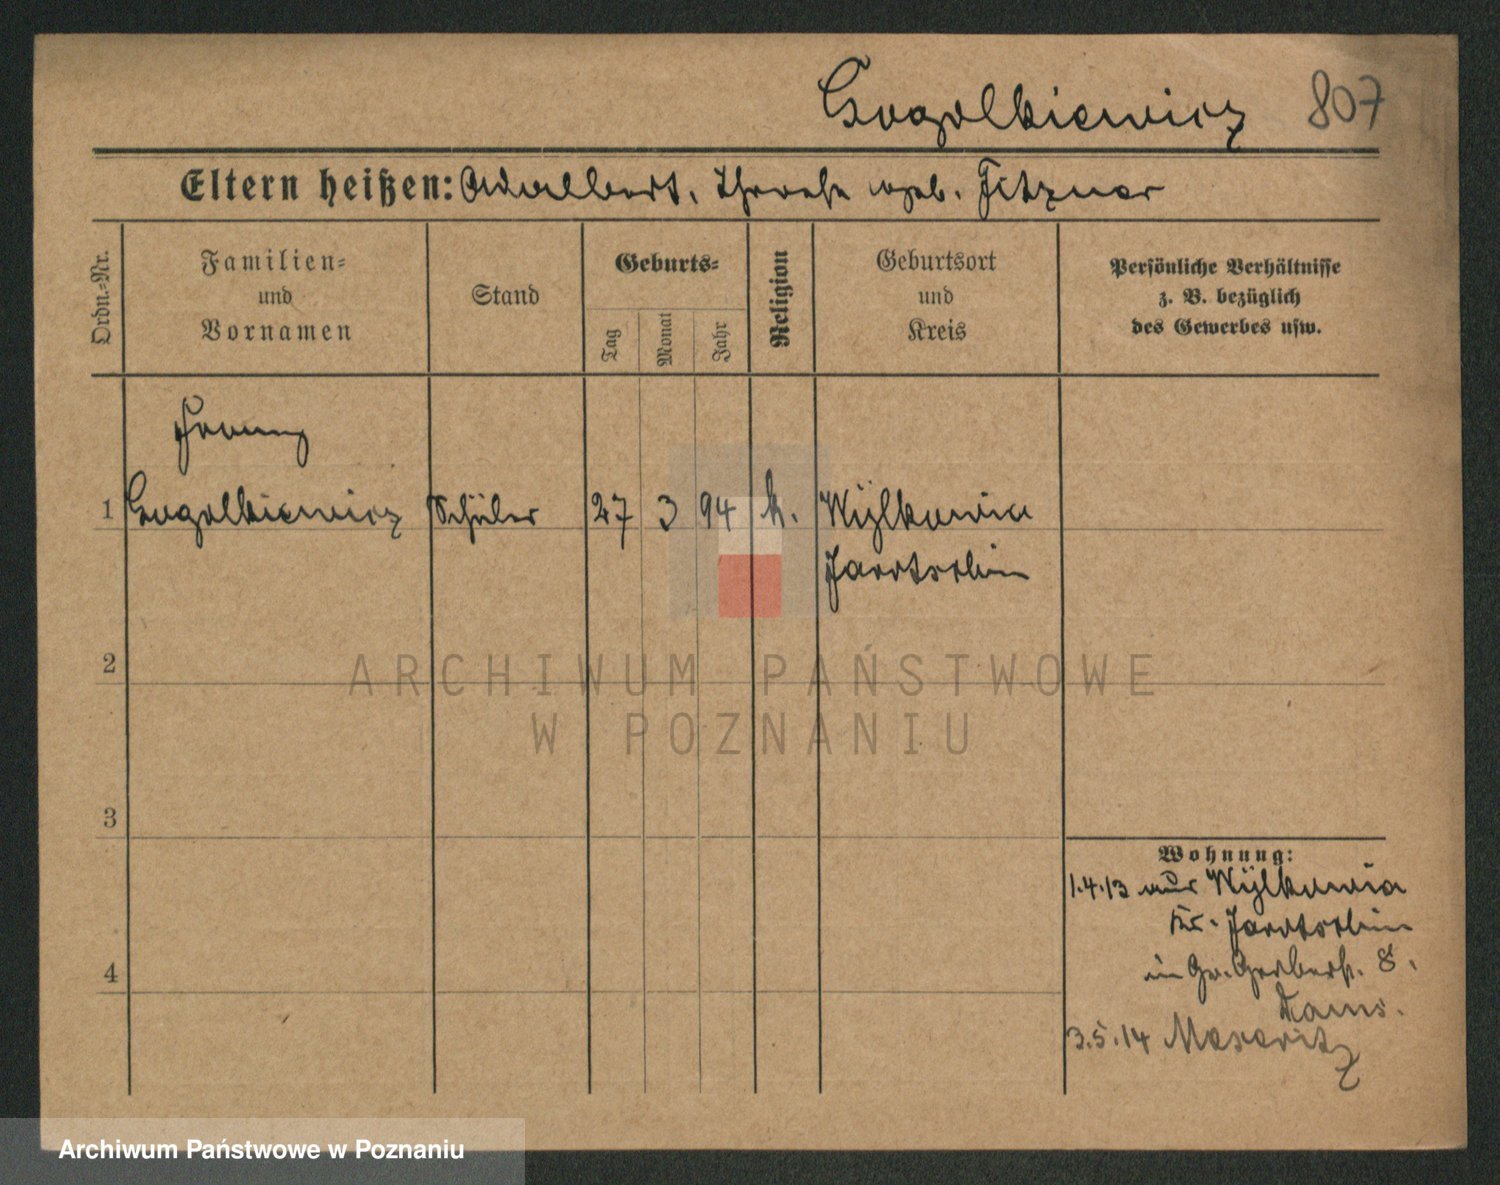 Gogolkiewicz 807
Eltern heißen: Adalbert, Therese geb. Fitzner
Ordn.-Nr.
Familien-
und
Vornamen
Stand
Geburts-
Tag
Monat
Jahr
Religion
Geburtsort
und
Kreis
Persönliche Verhältnisse
z. B. bezüglich
des Gewerbes usw.
Franz
1 Gogolkiewicz Schüler 27 3 94 k. Wÿlkowia
Jarotschin
2
3
4
Wohnung:
1.4.13 aus Wÿlkowia
Kr. Jarotschin
in Gr. Gerberst. 8.
3.5.14 Meseritz
ARCHIWUM PAŃSTWOWE
W POZNANIU
Archiwum Państwowe w Poznaniu